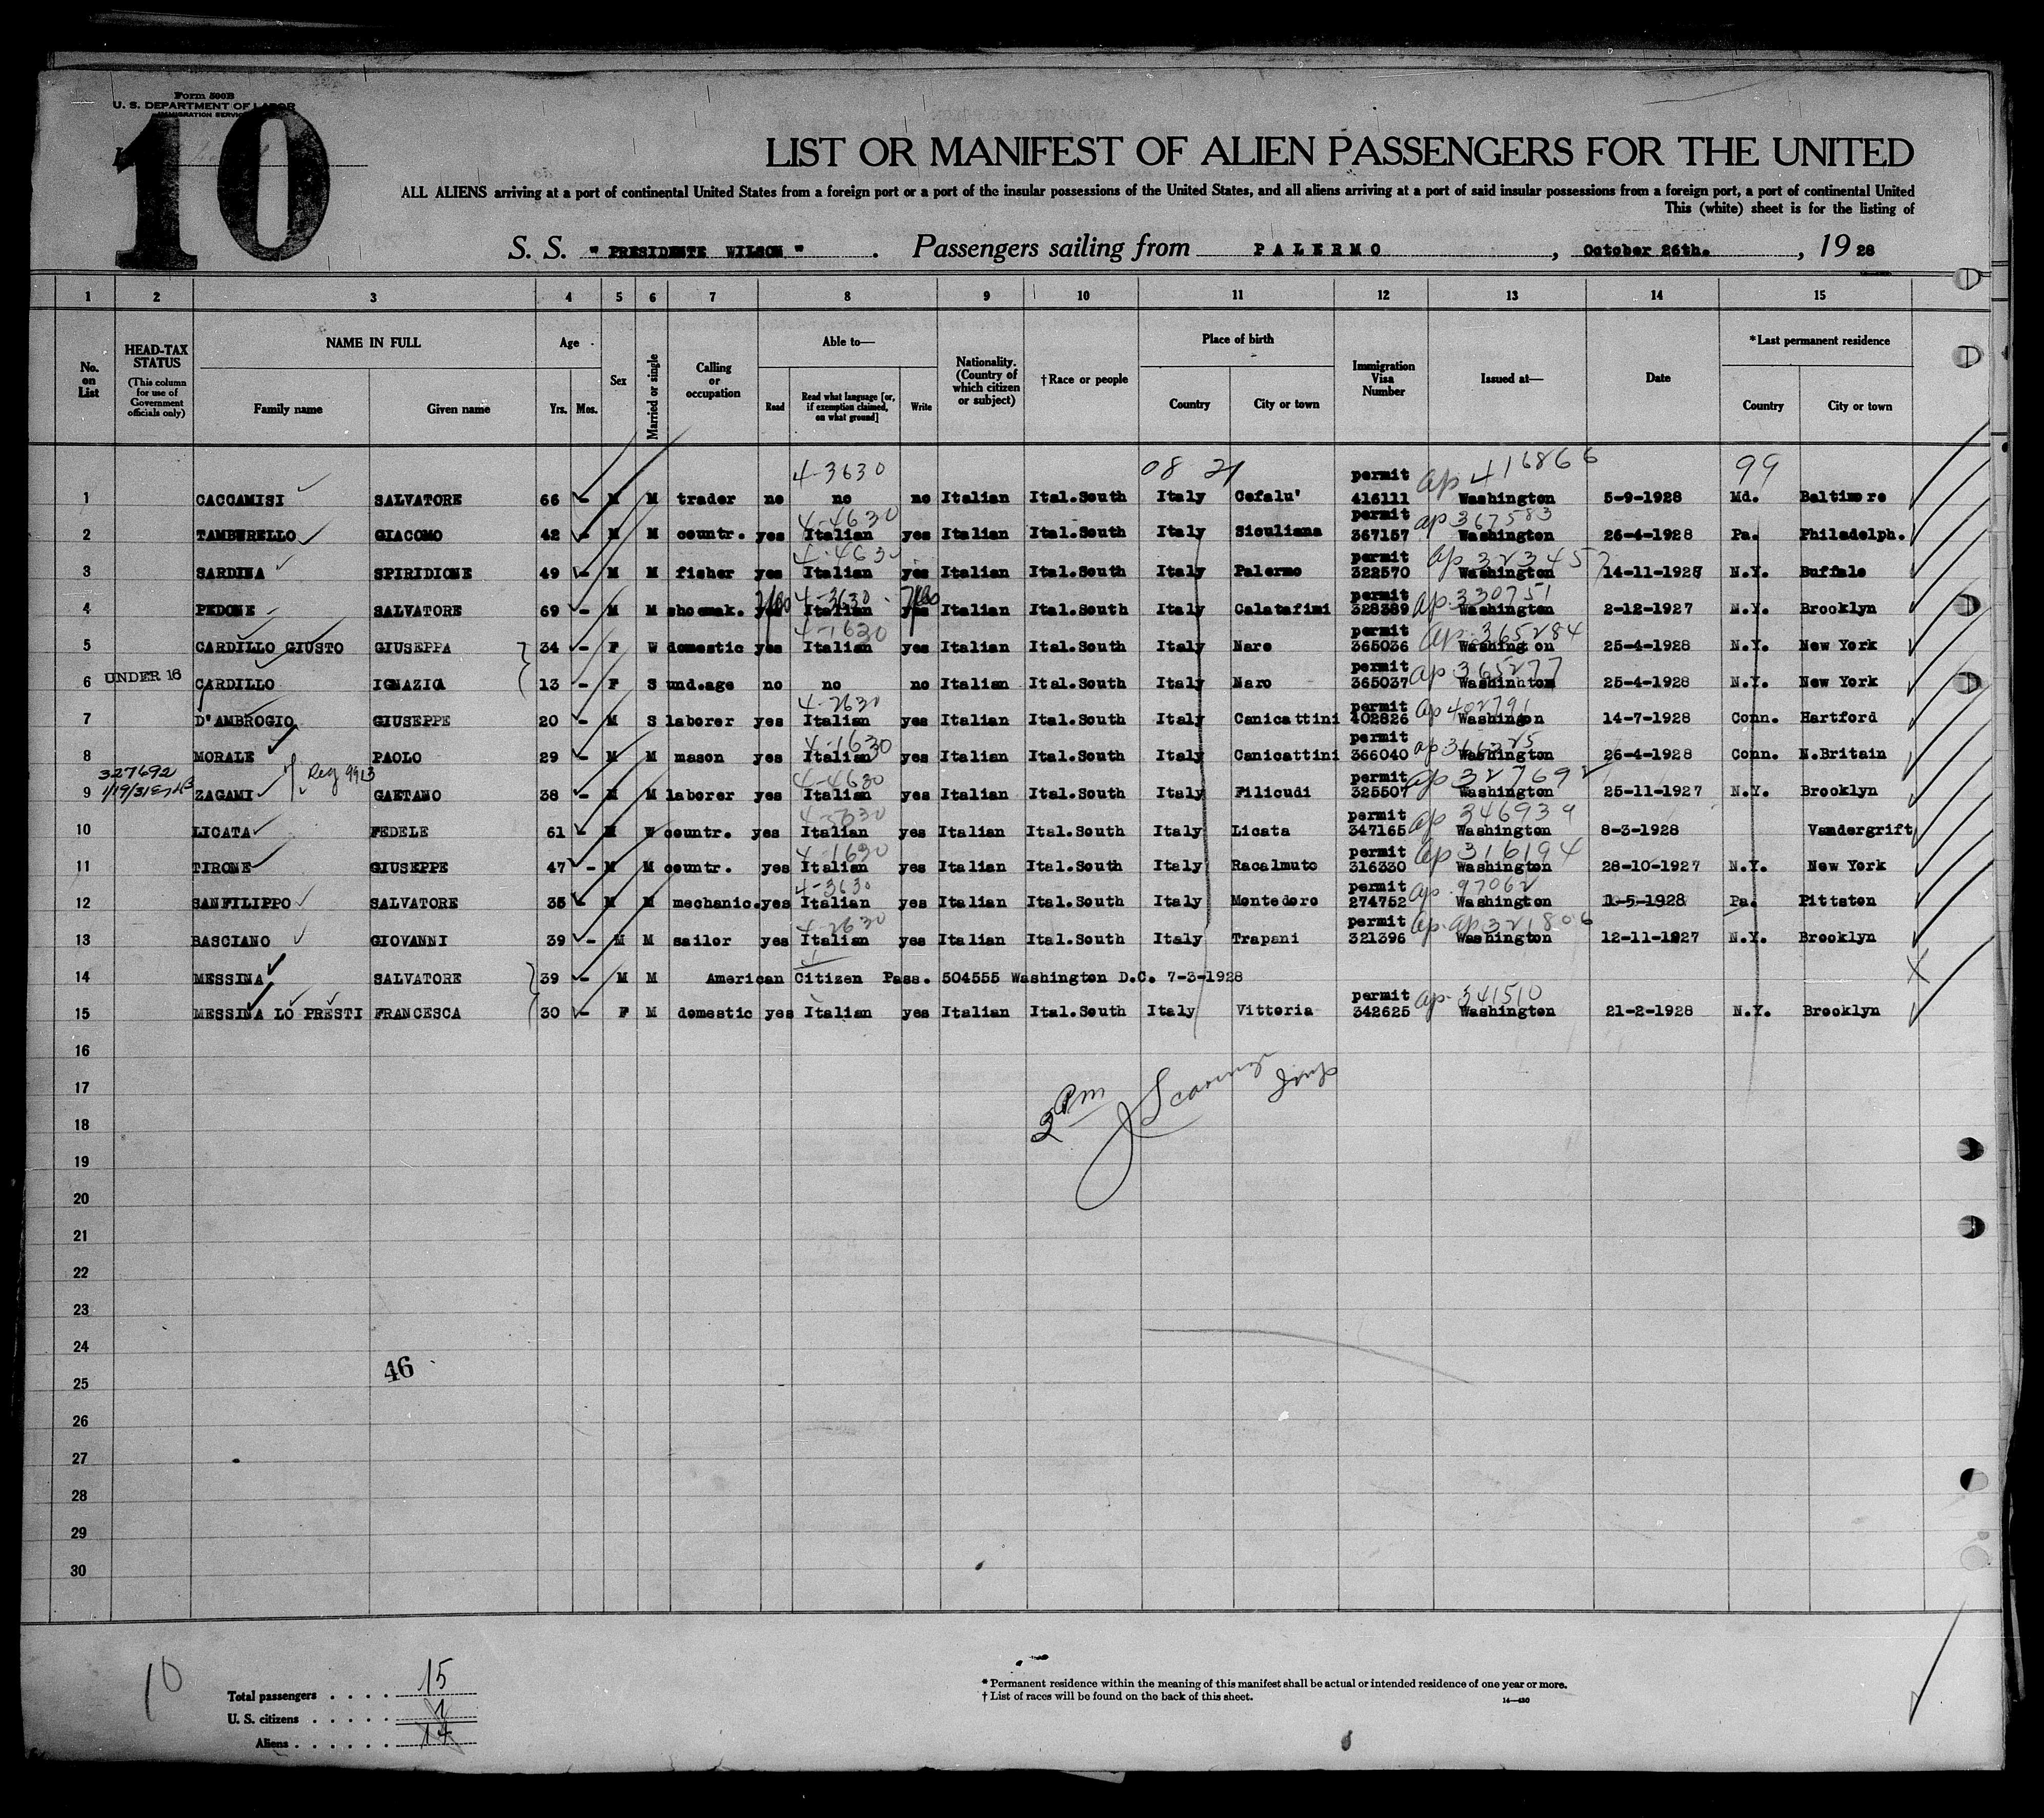 Form 500B
U. S. DEPARTMENT OF LABOR
IMMIGRATION SERVICE
10
LIST OR MANIFEST OF ALIEN PASSENGERS FOR THE UNITED
ALL ALIENS arriving at a port of continental United States from a foreign port or a port of the insular possessions of the United States, and all aliens arriving at a port of said insular possessions from a foreign port, a port of continental United
This (white) sheet is for the listing of
S. S. "PRESIDENTE WILSON". Passengers sailing from PALERMO, October 26th., 1928
1 2 3 4 5 6 7 8 9 10 11 12 13 14 15
No. on List HEAD-TAX STATUS (This column for use of Government officials only) NAME IN FULL Family name Given name Age Yrs. Mos. Sex Married or single Calling or occupation Able to— Read Read what language [or, if exemption claimed, on what ground] Write Nationality. (Country of which citizen or subject) †Race or people Place of birth Country City or town Immigration Visa Number Issued at— Date *Last permanent residence Country City or town
4-3630 08 21 permit ap 416866 99
1 CACCAMISI SALVATORE 66 - M M trader no no no Italian Ital.South Italy Cefalu' 416111 Washington 5-9-1928 Md. Baltimore
4-4630 permit ap 367583
2 TAMBURELLO GIACOMO 42 - M M countr. yes Italian yes Italian Ital.South Italy Siculiana 367157 Washington 26-4-1928 Pa. Philadelph.
4-4630 permit ap 323457
3 SARDINA SPIRIDIONE 49 - M M fisher yes Italian yes Italian Ital.South Italy Palermo 322570 Washington 14-11-1928 N.Y. Buffalo
4-3630 permit ap 330751
4 PEDONE SALVATORE 69 - M M shoemak. yes Italian yes Italian Ital.South Italy Calatafimi 328389 Washington 2-12-1927 N.Y. Brooklyn
4-1630 permit ap 365284
5 CARDILLO GIUSTO GIUSEPPA 34 - F W domestic yes Italian yes Italian Ital.South Italy Naro 365036 Washington 25-4-1928 N.Y. New York
UNDER 16 permit ap 365277
6 CARDILLO IGNAZIA 13 - F S und.age no no no Italian Ital.South Italy Naro 365037 Washinhtom 25-4-1928 N.Y. New York
4-2630 permit ap 402791
7 D'AMBROGIO GIUSEPPE 20 - M S laborer yes Italian yes Italian Ital.South Italy Canicattini 402826 Washington 14-7-1928 Conn. Hartford
4-1630 permit ap
8 MORALE PAOLO 29 - M M mason yes Italian yes Italian Ital.South Italy Canicattini 366040 Washington 26-4-1928 Conn. N.Britain
327692 Reg 9913 4-4630 permit ap 327692
9 1/19/31 ZAGAMI GAETANO 38 - M M laborer yes Italian yes Italian Ital.South Italy Filicudi 325507 Washington 25-11-1927 N.Y. Brooklyn
permit ap 346939
10 LICATA FEDELE 61 - M W countr. yes Italian yes Italian Ital.South Italy Licata 347165 Washington 8-3-1928 Vandergrift
4-1630 permit ap 316194
11 TIRONE GIUSEPPE 47 - M M countr. yes Italian yes Italian Ital.South Italy Racalmuto 316330 Washington 28-10-1927 N.Y. New York
4-3630 permit ap. 97062
12 SANFILIPPO SALVATORE 35 - M M mechanic. yes Italian yes Italian Ital.South Italy Montedoro 274752 Washington 1-5-1928 Pa. Pittston
4-2630 permit ap. ap 321806
13 BASCIANO GIOVANNI 39 - M M sailor yes Italian yes Italian Ital.South Italy Trapani 321396 Washington 12-11-1927 N.Y. Brooklyn
14 MESSINA SALVATORE 39 - M M American Citizen Pass. 504555 Washington D.C. 7-3-1928
permit ap. 341510
15 MESSINA LO PRESTI FRANCESCA 30 - F M domestic yes Italian yes Italian Ital.South Italy Vittoria 342625 Washington 21-2-1928 N.Y. Brooklyn
16
17
3 Pm
18
19
20
21
22
23
24
46
25
26
27
28
29
30
10
Total passengers . . . . 15
U. S. citizens . . . . . 1
Aliens . . . . . . 14
* Permanent residence within the meaning of this manifest shall be actual or intended residence of one year or more.
† List of races will be found on the back of this sheet.
14—430